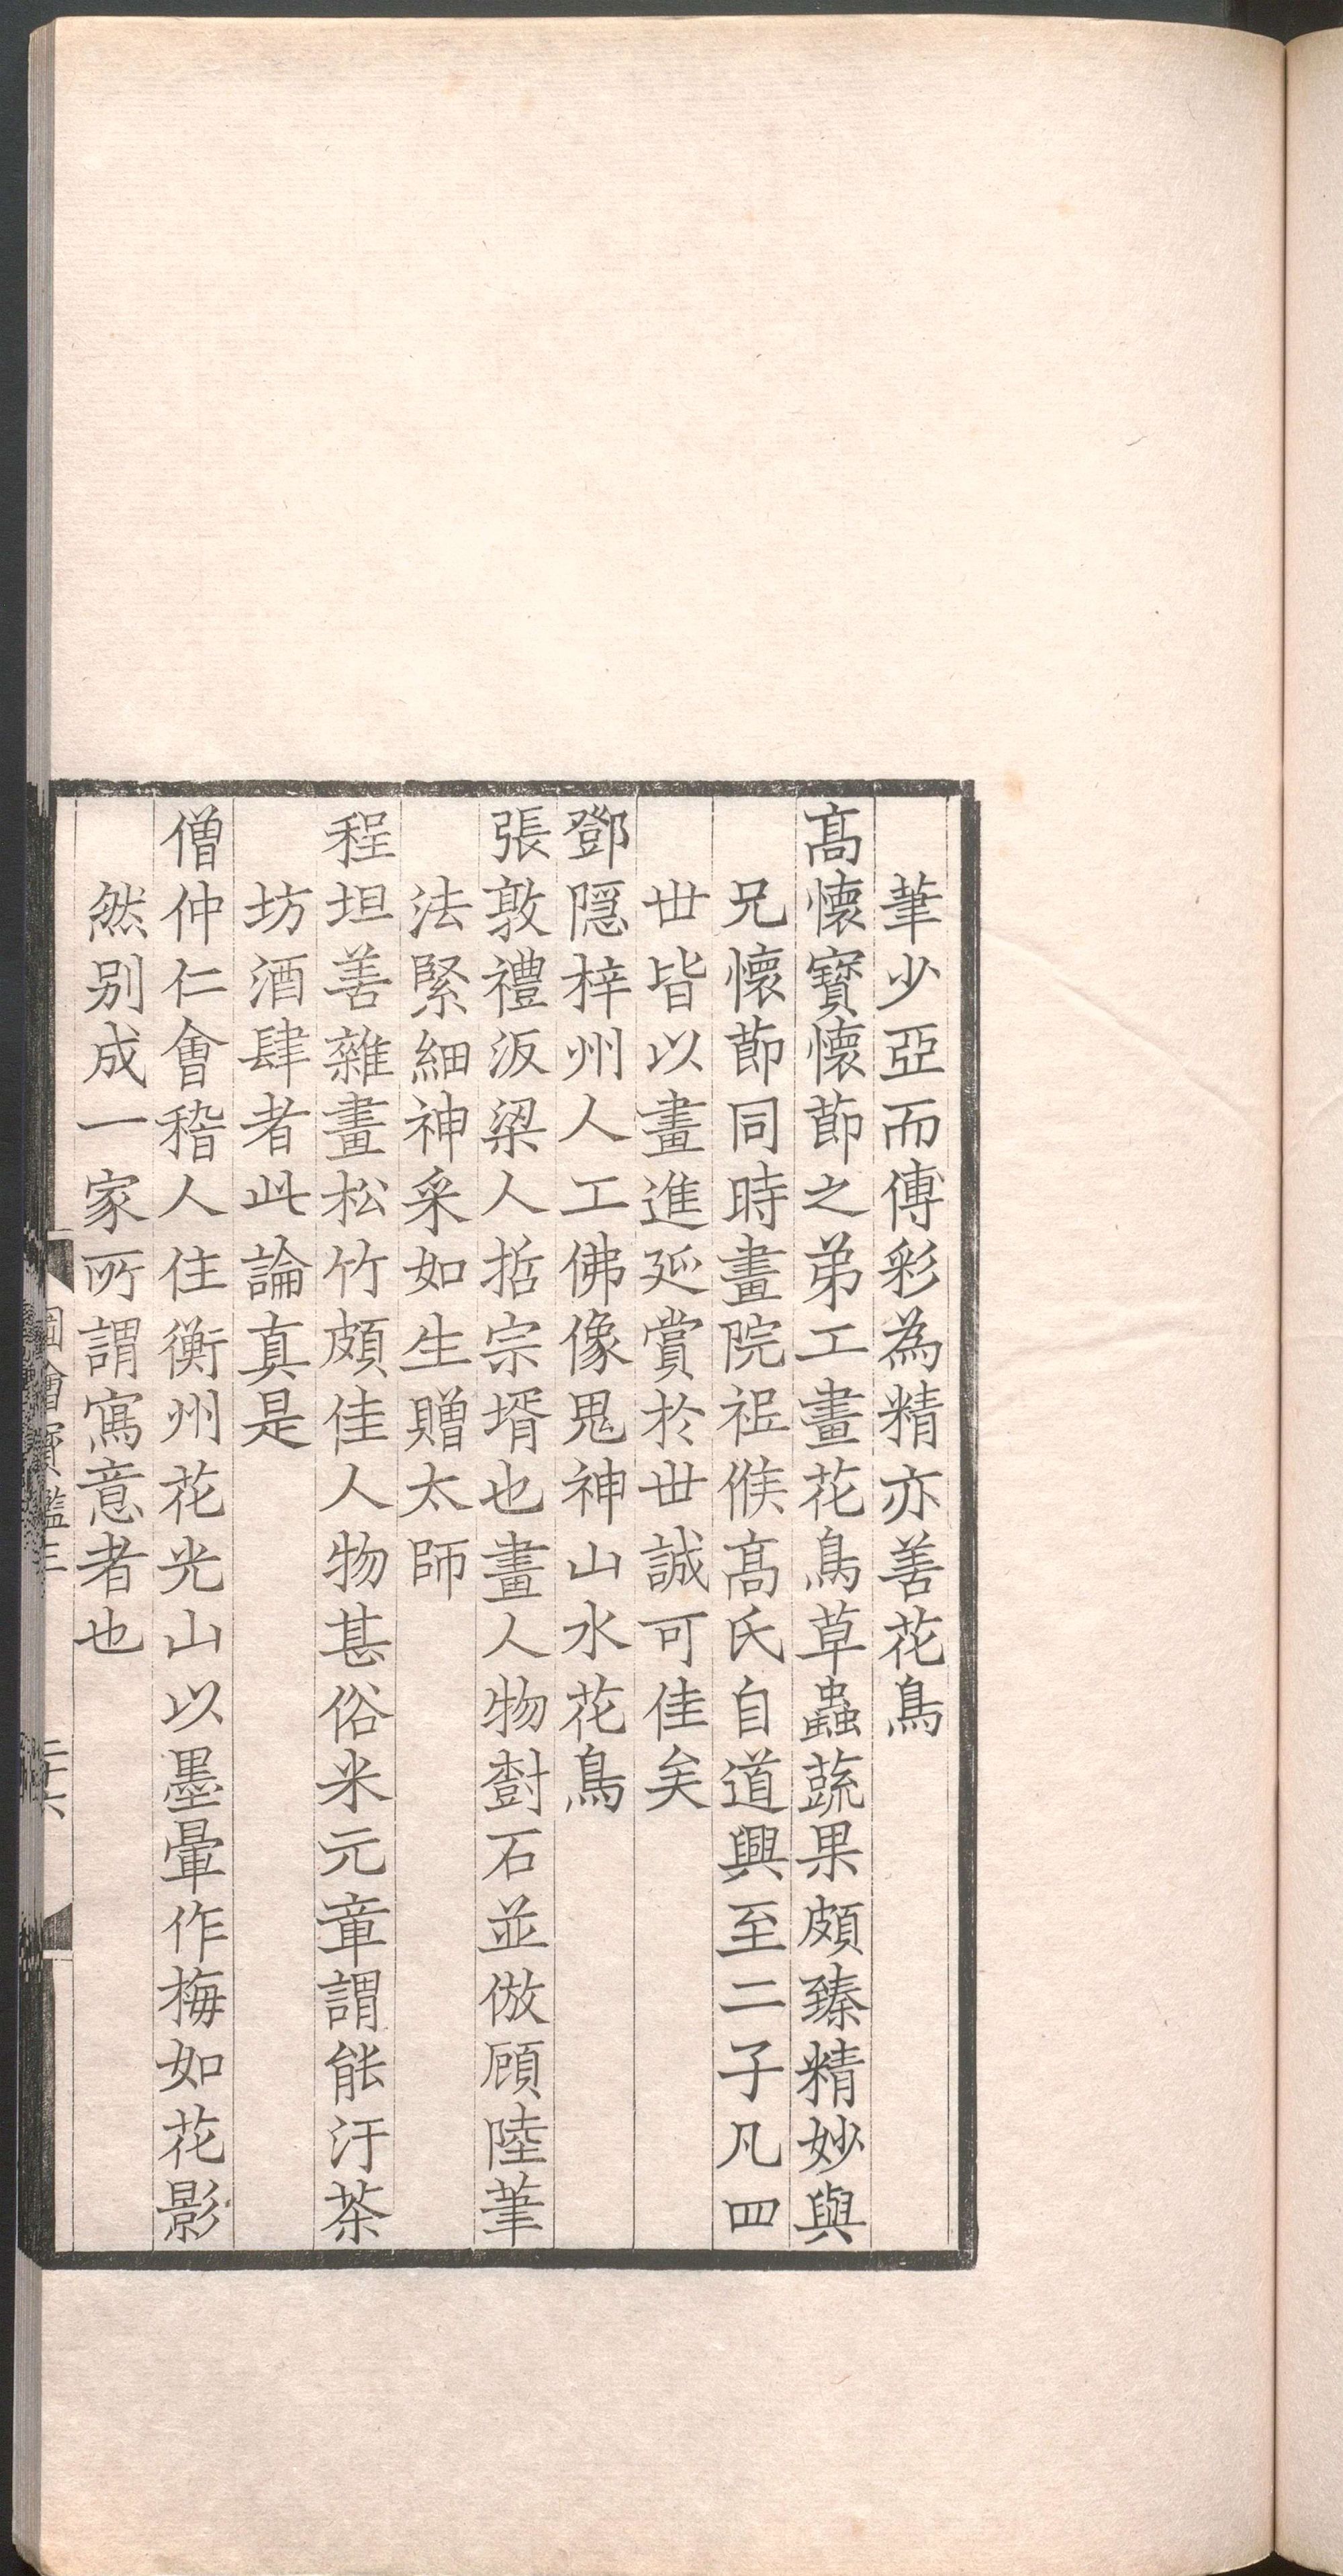 筆少亞而傅彩為精亦善花鳥
髙懷寳懷節之弟工畫花鳥草蟲蔬果頗臻精妙與
兄懷節同時畫院祗候髙氏自道興至二子凡四
世皆以畫進延賞於世誠可佳矣
鄧隱梓州人工佛像鬼神山水花鳥
張敦禮汳梁人哲宗壻也畫人物樹石並倣顧陸筆
法緊細神采如生贈太師
程坦善雜畫松竹頗佳人物甚俗米元章謂能汙茶
坊酒肆者此論真是
僧仲仁會稽人住衡州花光山以墨暈作梅如花影
然别成一家所謂寫意者也
圖繪寳鑑三
二十六